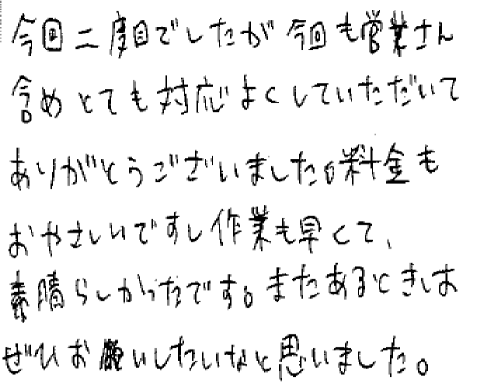 今回二度目でしたが今回も営業さん
含めとても対応よくしていただいて
ありがとうございました。料金も
おやさしいですし作業も早くて、
素晴らしかったです。またあるときは
ぜひお願いしたいなと思いました。